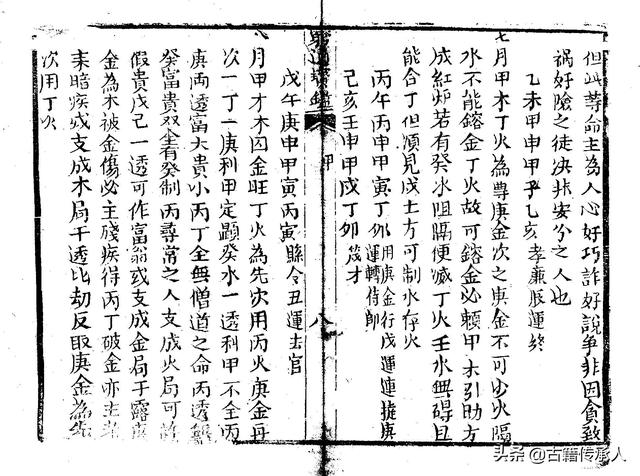 但此等命主為人心好巧詐好說爭非因貪致
禍好陰之徒决非安分之人也
乙未甲申甲子乙亥 孝廉辰運終
七月甲木丁火為尊庚金次之庚金不可少火隔
水不能鎔金丁火故可鎔金必賴甲木引助方
成紅炉若有癸水阻隔便滅丁火壬水無碍且
能合丁但須見戊土方可制水存火
丙午丙申甲寅丁卯 用庚金行戌運連捷庚
運轉侍郎
己亥壬申甲戌丁卯 茂才
窮通寶鑑
甲
八
戊午庚申甲寅丙寅 縣令丑運去官
八月甲才木囚金旺丁火為先次用丙火庚金再
次一丁一庚利甲定顕癸水一透利甲不全丙
庚両透富大貴小丙丁全無僧道之命丙透無
癸富貴双全有癸制丙尋常之人支成火局可許
假貴戊己一透可作富翁或支成金局干露庚
金為木被金傷必主殘疾得丙丁破金亦主老
来暗疾或支成木局干透比劫反取庚金為先
次用丁火
头条@古籍传承人